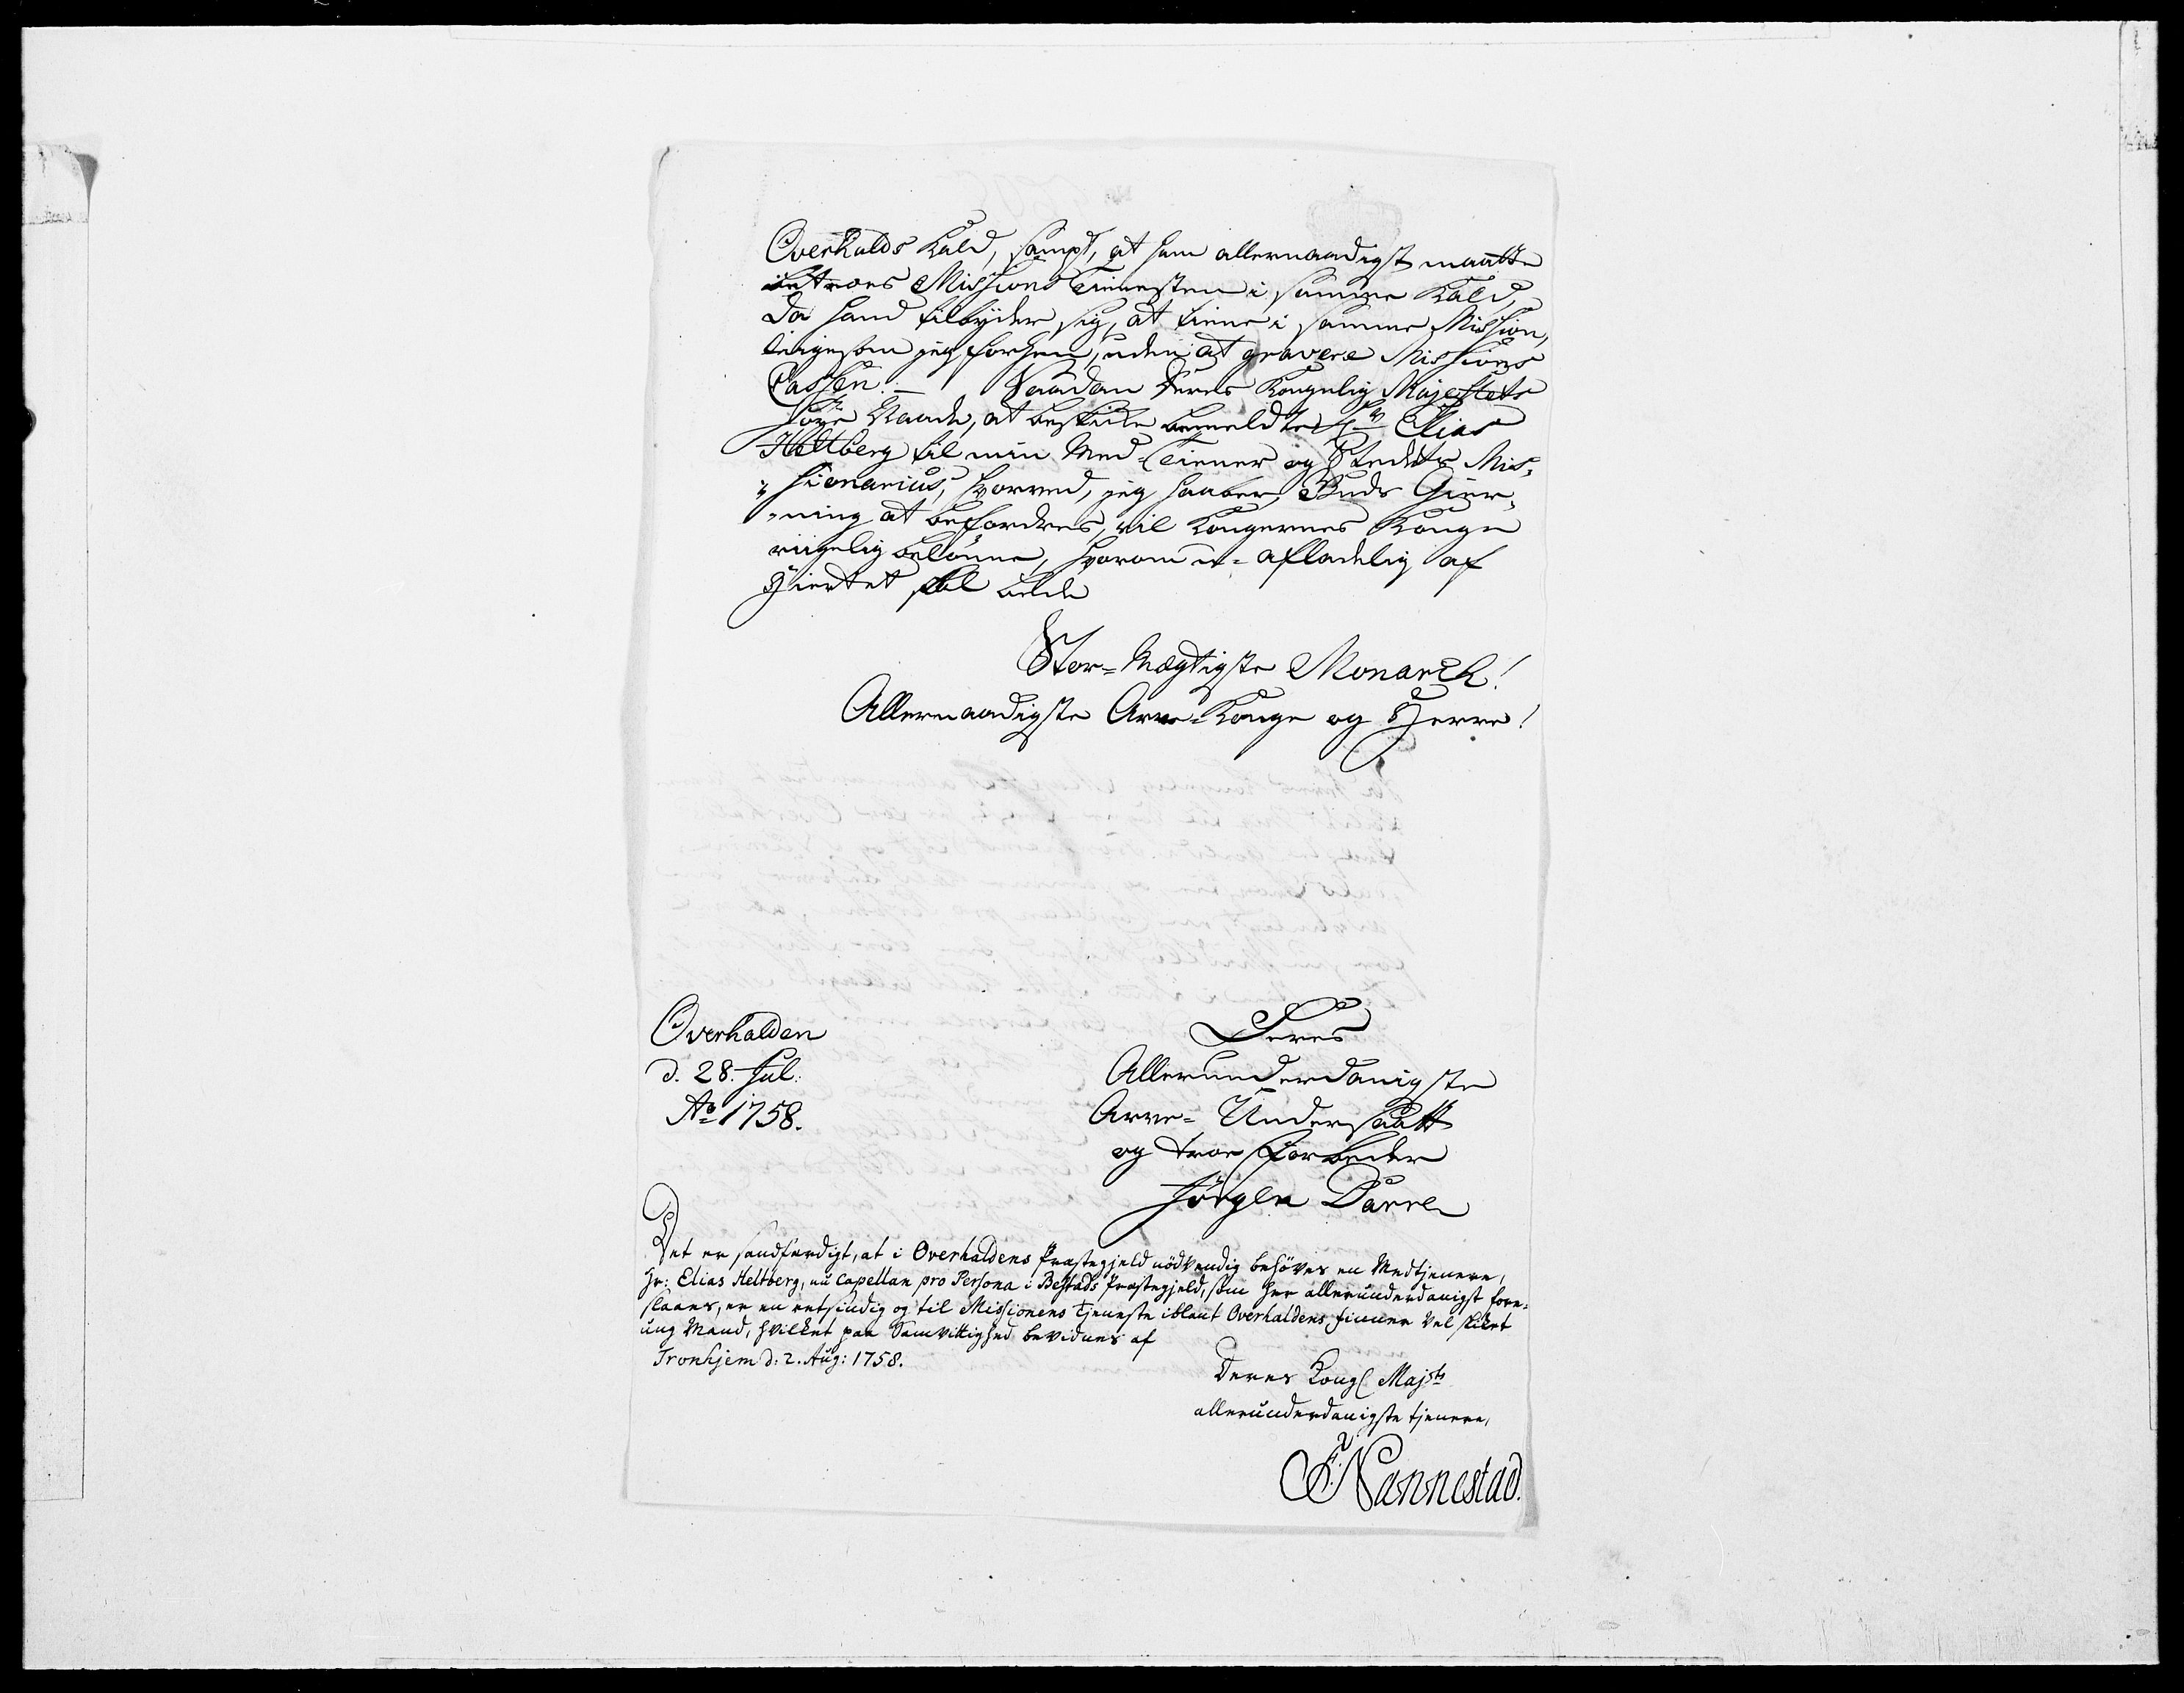 Overhalds Kald, sampt, at ham allernaadigst maatte
betroes Missions Tienesten i samme Kald,
Da hand tilbyder sig, at tiene i samme Mission,
ligesom jeg forhen, uden at gravere Missions
Cassen. — Saadan Deres Kongelig Majestets
Høye Naade, at beskikke bemeldte Hr Elias
Heltberg til min Med-Tiener og Stedets Mis-
sionarius, hvorved, jeg haaber, Guds Gier-
ning at befordres, vil Kongernes Konge
riigelig belønne, hvorom u-afladelig af
Hiertet skal bede
Stor-Mægtigste Monarch!
Allernaadigste Arve-Konge og Herre!
Overhalden
d. 28. Jul.
Ao 1758.
Deres
Allerunderdanigste
Arve-Undersaatt
og troe Forbeder
Jörgen Darre
Det er sandfærdigt, at i Overhaldens Præstegjeld nödvendig behöves en Medtjenere,
Hr: Elias Heltberg, nu Capellan pro Persona i Bestads Præstegjeld, som her allerunderdanigst fore-
slaaes, er en retsindig og til Missionens Tjeneste iblant Overhaldens finner vel skiket
ung Mand, hvilket paa Samvittighed bevidnes af
Tronhjem d: 2. Aug: 1758.
Deres Kongl Majsts
allerunderdanigste tjenere,
F: Nannestad.